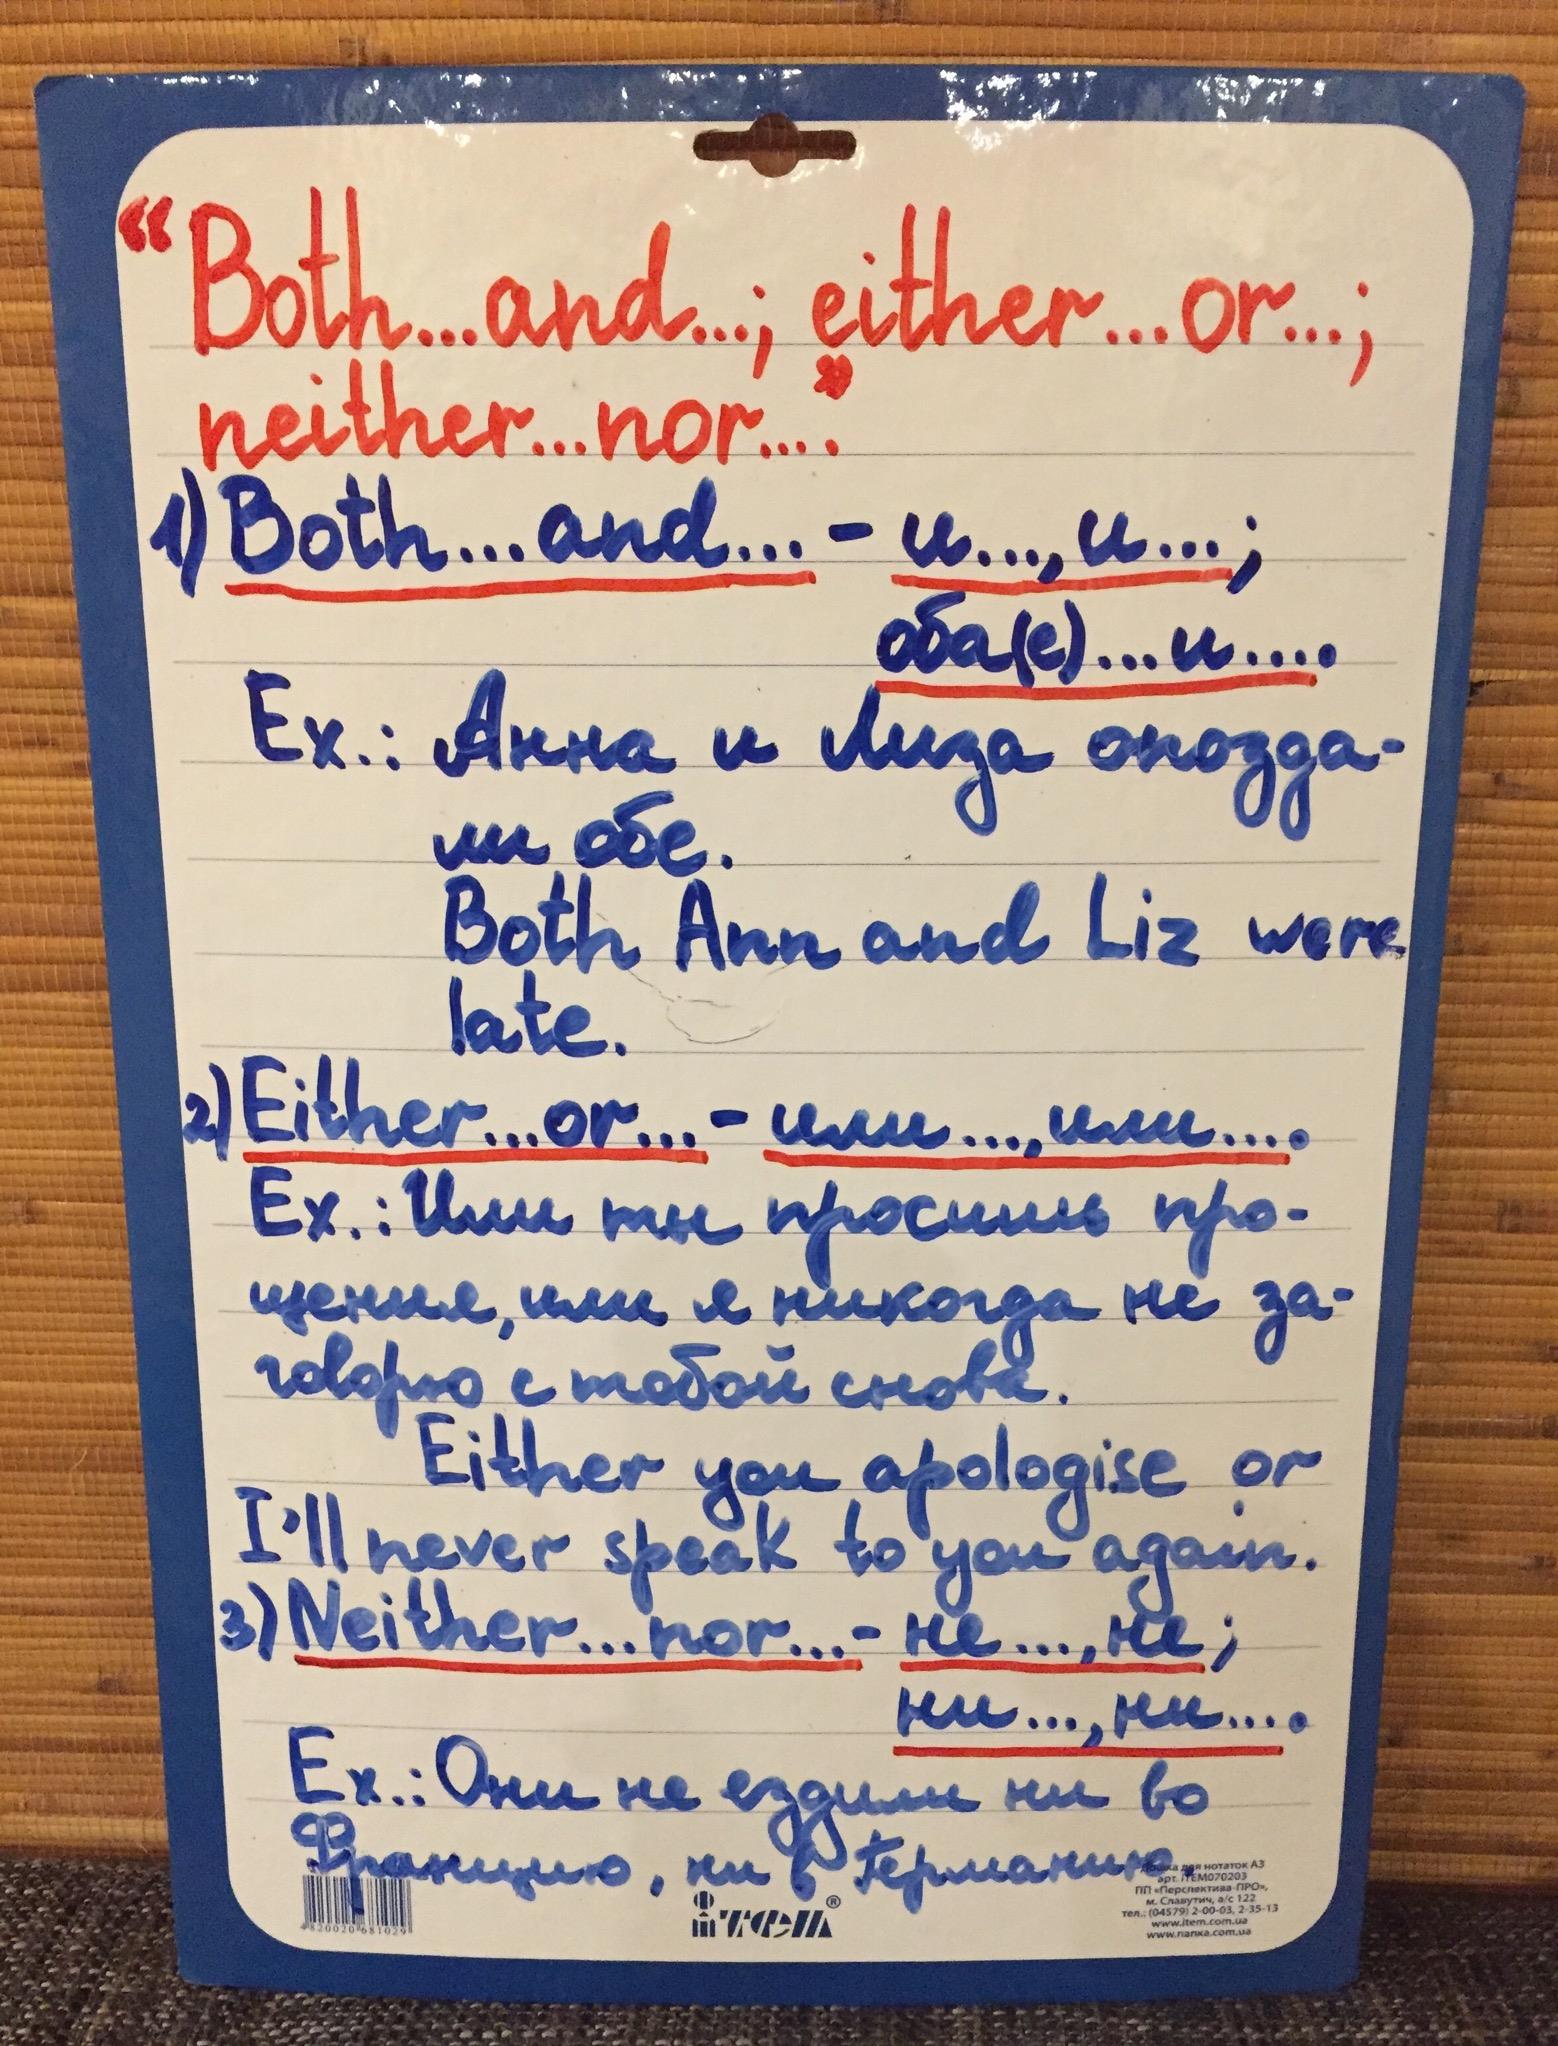 “Both...and...; either...or...;
neither...nor....”
1) Both...and... - и...,и...;
оба(е)...и....
Ex.: Анна и Лиза опозда-
ли обе.
Both Ann and Liz were
late.
2) Either...or... - или...,или....
Ex.: Или ты просишь про-
щения, или я никогда не за-
говорю с тобой снова.
Either you apologise or
I'll never speak to you again.
3) Neither...nor... - не...,не;
ни...,ни....
Ex.: Они не ездили ни во
Францию, ни в Германию.
4820020681029
iтем®
Дошка для нотаток А3
арт. iTEM070203
ПП «Перспектива-ПРО»,
м. Славутич, а/с 122
тел.: (04579) 2-00-03, 2-35-13
www.item.com.ua
www.папка.com.ua